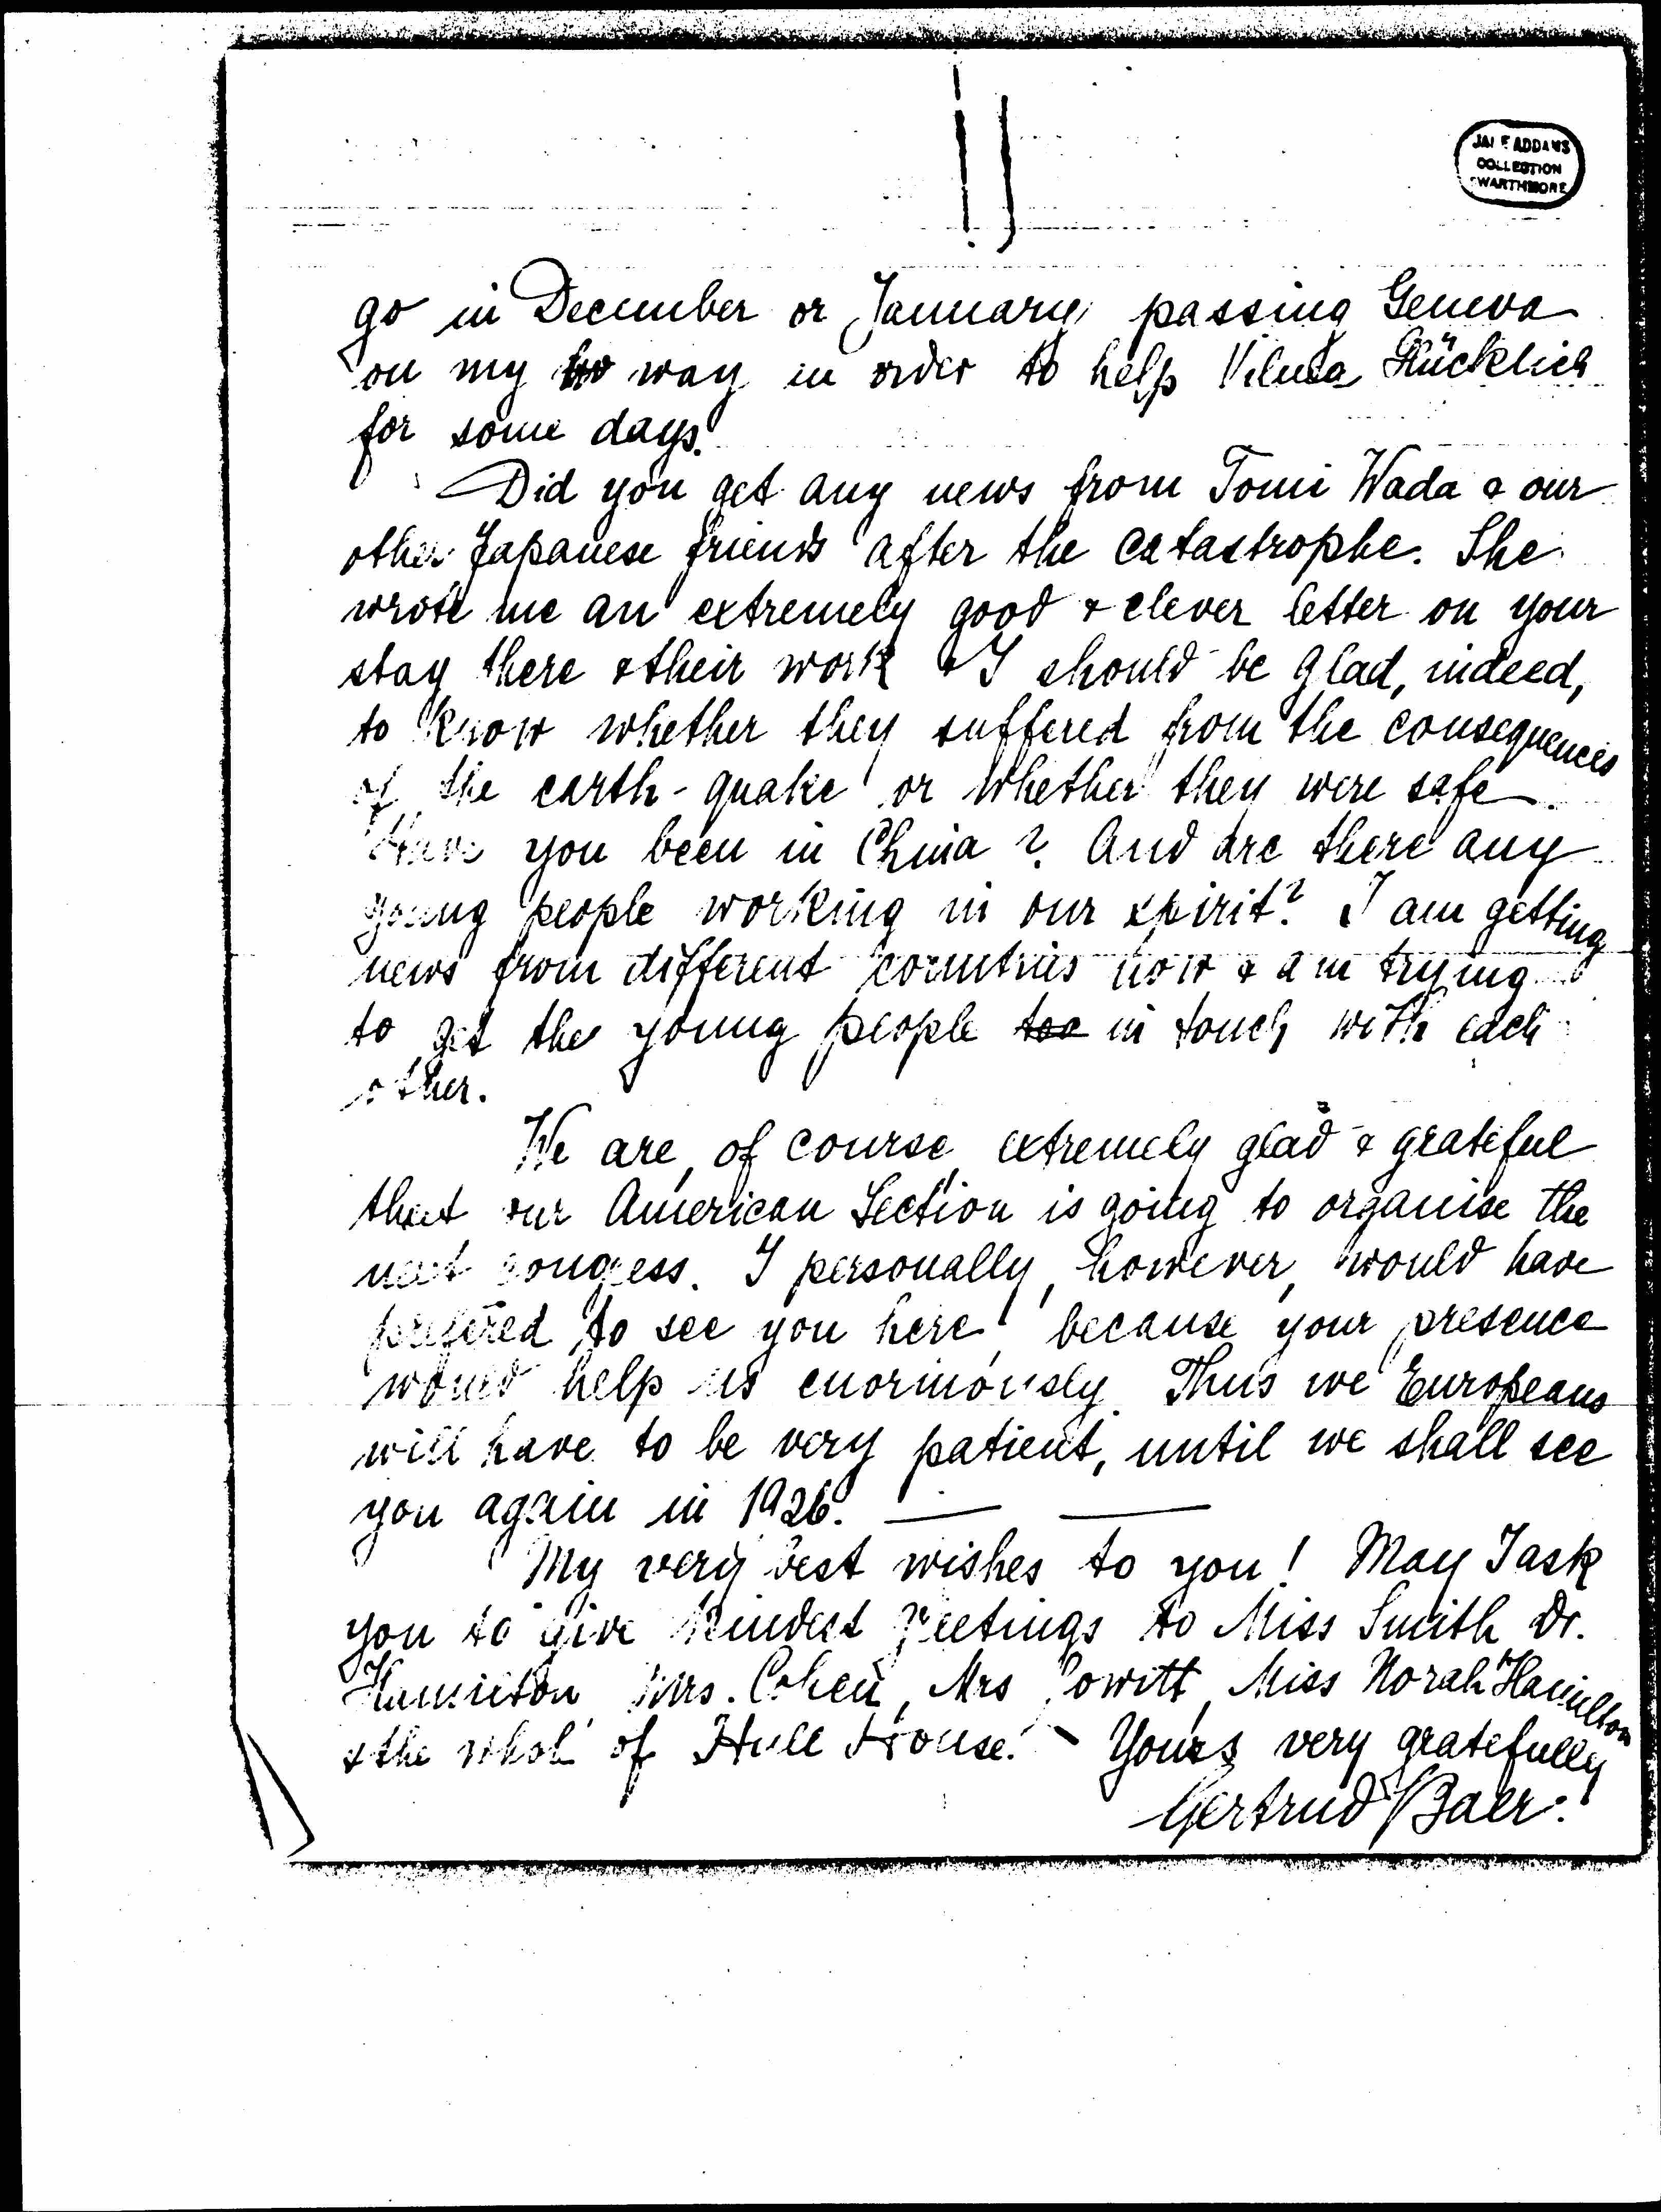 JANE ADDAMS
COLLECTION
SWARTHMORE
go in December or January, passing Geneva
on my way in order to help Vilma Glücklich
for some days.
Did you get any news from Tomi Wada & our
other Japanese friends after the catastrophe. She
wrote me an extremely good & clever letter on your
stay there & their work & I should be glad, indeed,
to know whether they suffered from the consequences
of the earth-quake or whether they were safe.
Have you been in China? And are there any
young people working in our spirit? I am getting
news from different countries now & am trying
to get the young people too in touch with each
other.
We are, of course, extremely glad & grateful
that our American Section is going to organise the
next congress. I personally, however, would have
prefered to see you here, because your presence
would help us enormously. Thus we Europeans
will have to be very patient, until we shall see
you again in 1926. — —
My very best wishes to you! May I ask
you to give kindest greetings to Miss Smith Dr.
Hamilton, Mrs. Cohen, Mrs Jowitt, Miss Norah Hamilton
& the whole of Hull House. - Yours very gratefully
Gertrud Baer.